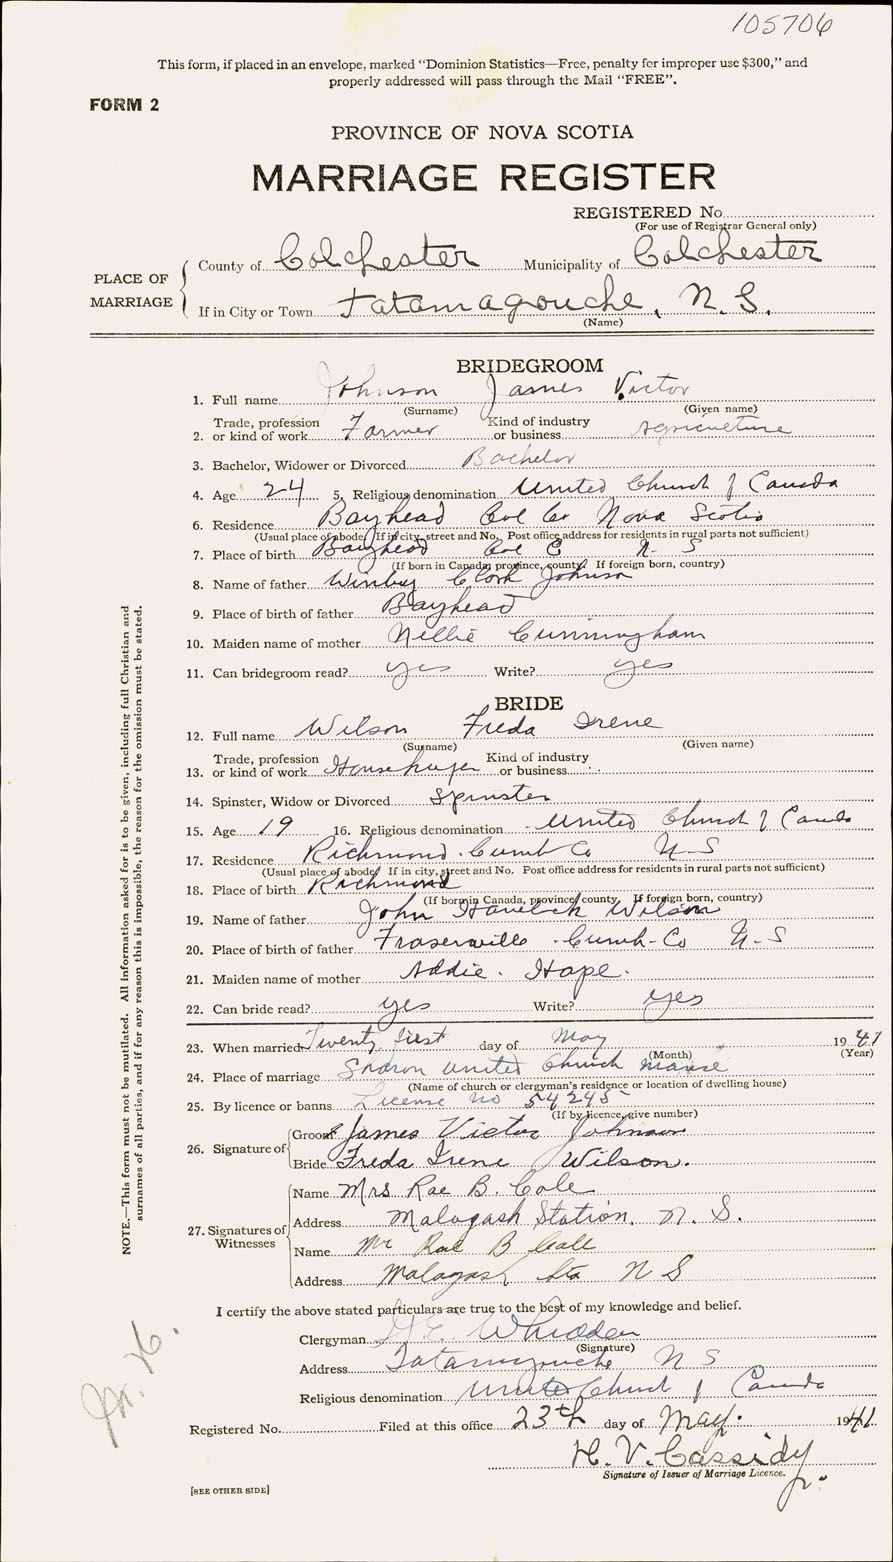 105706
This form, if placed in an envelope, marked "Dominion Statistics—Free, penalty for improper use $300," and
properly addressed will pass through the Mail "FREE".
FORM 2
PROVINCE OF NOVA SCOTIA
MARRIAGE REGISTER
REGISTERED No.
(For use of Registrar General only)
PLACE OF MARRIAGE
County of Colchester Municipality of Colchester
If in City or Town Tatamagouche, N. S.
(Name)
BRIDEGROOM
1. Full name Johnson James Victor
(Surname) (Given name)
2. Trade, profession or kind of work Farmer Kind of industry or business Agriculture
3. Bachelor, Widower or Divorced Bachelor
4. Age 24 5. Religious denomination United Church of Canada
6. Residence Bayhead Col Co Nova Scotia
(Usual place of abode. If in city, street and No. Post office address for residents in rural parts not sufficient)
7. Place of birth Bayhead Col C N S
(If born in Canada, province, county. If foreign born, country)
8. Name of father Clark Johnson
9. Place of birth of father Bayhead
10. Maiden name of mother Nellie Cunningham
11. Can bridegroom read? yes Write? yes
BRIDE
12. Full name Wilson Freda Irene
(Surname) (Given name)
13. Trade, profession or kind of work Kind of industry or business
14. Spinster, Widow or Divorced Spinster
15. Age 19 16. Religious denomination United Church of Canada
17. Residence Richmond Cumb Co N S
(Usual place of abode. If in city, street and No. Post office address for residents in rural parts not sufficient)
18. Place of birth Richmond
(If born in Canada, province, county. If foreign born, country)
19. Name of father John Havelock Wilson
20. Place of birth of father Fraserville Cumb-Co N-S
21. Maiden name of mother Addie Hope.
22. Can bride read? yes Write? yes
23. When married Twenty first day of May 1941
(Month) (Year)
24. Place of marriage Sharon United Church Manse
(Name of church or clergyman's residence or location of dwelling house)
25. By licence or banns License no 54245
(If by licence, give number)
26. Signature of
Groom James Victor Johnson
Bride Freda Irene Wilson.
27. Signatures of Witnesses
Name Mrs Rae B. Cole
Address Malagash Station, N. S.
Name Mr Rae B Cole
Address Malagash Sta N S
I certify the above stated particulars are true to the best of my knowledge and belief.
Clergyman Whidden
(Signature)
Address Tatamagouche N S
Religious denomination United Church of Canada
Registered No. Filed at this office 23th day of May. 1941
H. V. Cassidy
Signature of Issuer of Marriage Licence.
[SEE OTHER SIDE]
NOTE.—This form must not be mutilated. All information asked for is to be given, including full Christian and
surnames of all parties, and if for any reason this is impossible, the reason for the omission must be stated.